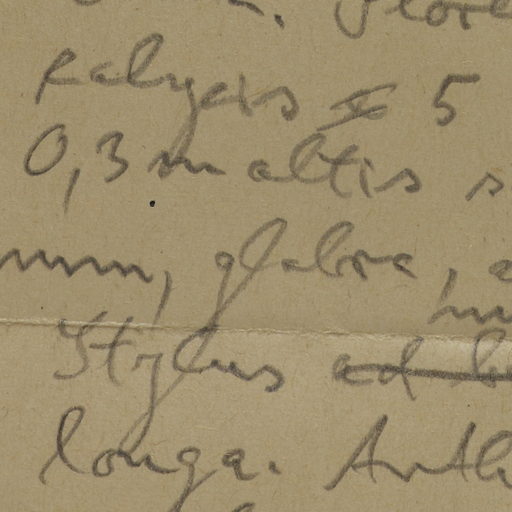 calycis 5
0,3 m altis s
mm, glabra,
Stylus ad
longa. Anth